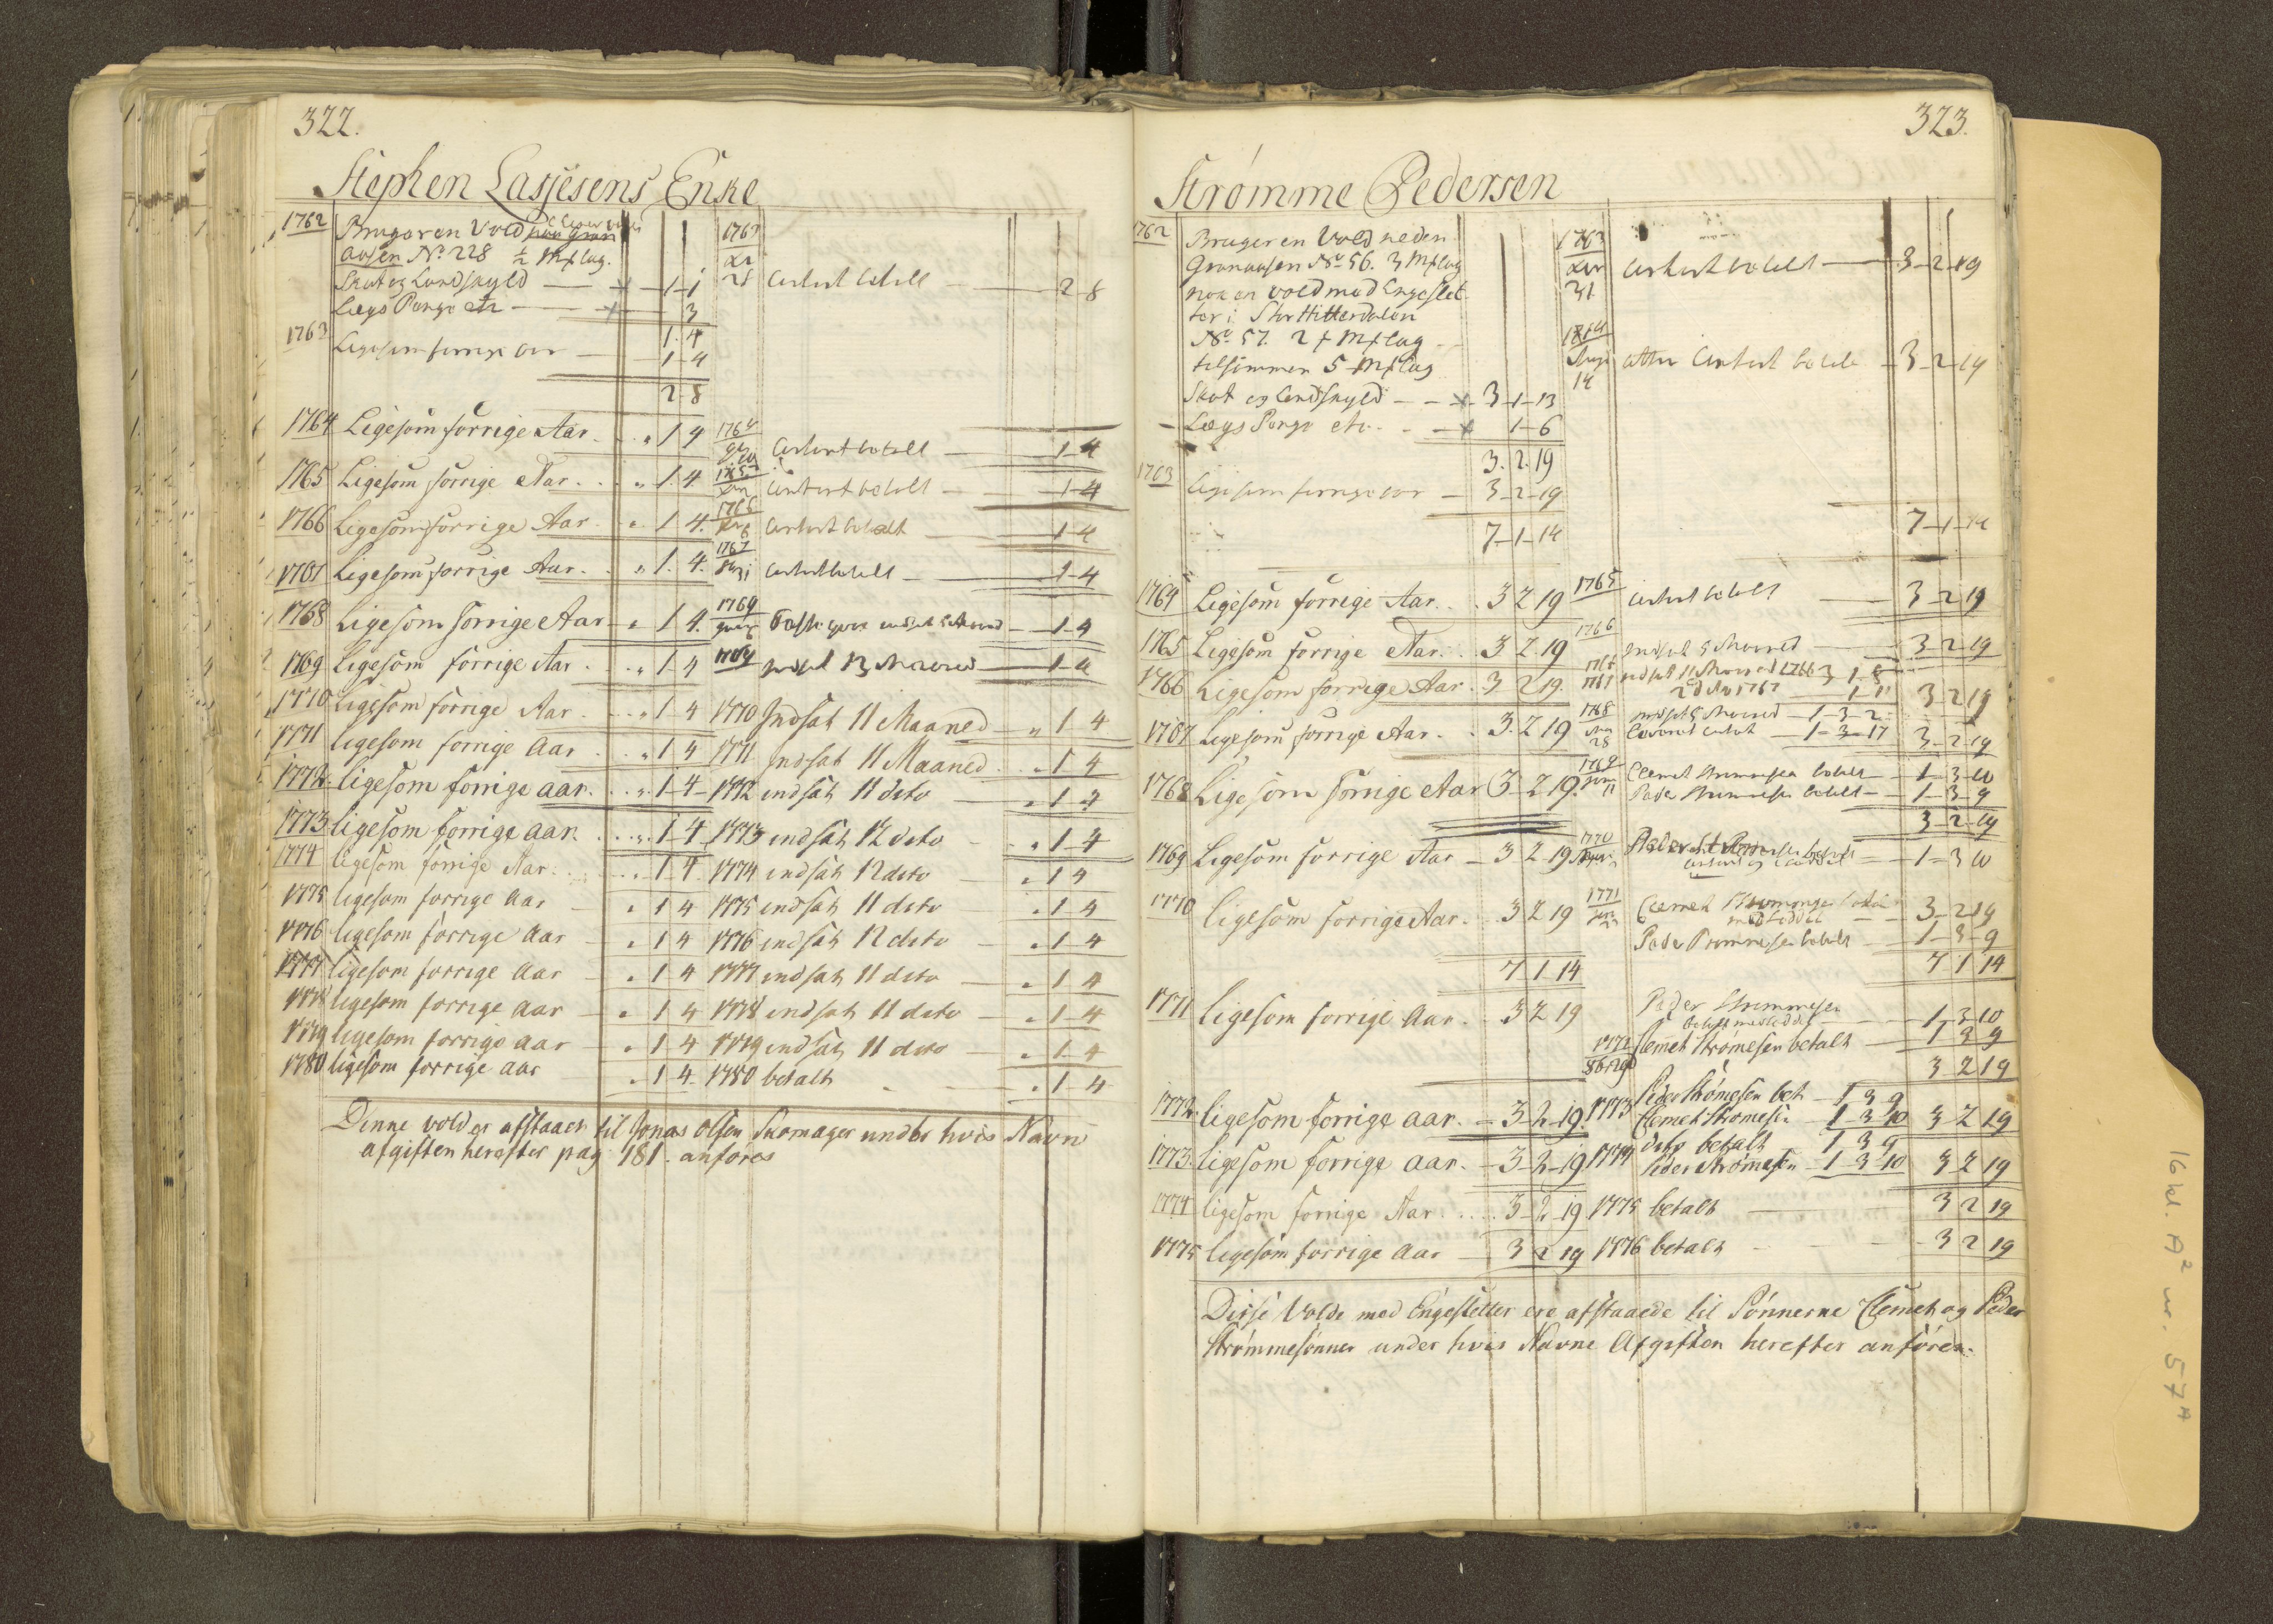 322.
Stephen Lassesens Enke
1762 Bruger en Vold
aasen No 228 ½ Mæhlag.
Skat og Landskyld — 1-1
Lægs Penge etc — 3
1.4
1763 Ligesom forrige aar — 1-4
2-8
1764 Ligesom forrige Aar. „ 1 4
1765 Ligesom forrige Aar. „ 1 4.
1766 Ligesom forrige Aar. „ 1 4.
1767 Ligesom forrige Aar. „ 1. 4.
1768 Ligesom forrige Aar „ 1 4.
1769 Ligesom forrige Aar „ 1 4
1770 Ligesom forrige Aar „ 1-4
1771 ligesom forrige Aar „ 1 4
1772 ligesom forrige aar. „ 1-4
1773 ligesom forrige aar. „ 1-4
1774 ligesom forrige Aar. „ 1-4
1775 ligesom forrige Aar „ 1 4
1776 ligesom forrige Aar „ 1 4
1777 ligesom forrige Aar „ 1 4
1778 ligesom forrige Aar „ 1 4
1779 ligesom forrige Aar „ 1 4
1780 ligesom forrige Aar „ 1 4
1763
28 Contant betalt — 2-8
1764 Contant betalt — 1-4
1765 Contant betalt — 1-4
1766 Contant betalt — 1-4
1767 Contant betalt — 1-4
1769 — 1-4
indsat 13 Maaned — 1-4
1770 Indsat 11 Maaned „ 1-4
1771 Indsat 11 Maaned „ 1 4
1772 indsat 11 dito „ 1-4
1773 indsat 12 dito „ 1-4
1774 indsat 12 dito „ 1 4
1775 indsat 11 dito „ 1 4
1776 indsat 12 dito „ 1 4
1777 indsat 11 dito „ 1 4
1778 indsat 11 dito „ 1 4
1779 indsat 11 dito „ 1-4
1780 betalt „ 1 4
Denne vold er afstaaen til Jonas Olsen Skomager under hvis Navn
afgiften herefter pag 181. anføres
323.
Strømme Pedersen
1762 Bruger en Vold neden
Granaasen No 56. 3 Mæhlag
nok en vold med Engeslet
ter i Stor Hitterdalen
No 57. 2 Mæhlag
tilsammen 5 Mæhlag
Skat og Landskyld — 3-1-13
Lægs Penge etc. — 1-6
3.2.19
1763 Ligesom forrige aar — 3-2-19
7-1-14
1764 Ligesom forrige Aar. 3 2 19
1765 Ligesom forrige Aar. 3 2 19
1766 Ligesom forrige Aar. 3 2 19.
1767 Ligesom forrige Aar. 3 2 19
1768 Ligesom forrige Aar 3 2 19.
1769 Ligesom forrige Aar 3 2 19
1770 ligesom forrige Aar. 3 2 19
7 1-14
1771 ligesom forrige Aar. 3 2 19
1772 ligesom forrige aar. 3-2-19.
1773. ligesom forrige aar. 3-2-19
1774 ligesom forrige Aar 3-2-19
1775 ligesom forrige Aar 3 2 19
1763
31 Contant betalt — 3-2-19
1764
14 atter Contant betalt — 3-2-19
7-1-14
1765 Contant betalt — 3-2-19
1766 indsat 5 Maaned — 3-2-19
indsat 11 Maaned 1766 3 1-8
1767 1-11 3 2 19
1768 indsat 5 Maaned — 1-3-2
28 Contant — 1-3-17 3-2-19
1769 Clemet Strømmesen betalt — 1-3-10
Peder Strømmesen betalt — 1-3-9
3-2-19
1770 — 1-3 10
1771 Clemet — 3-2-19
Peder Strømmesen betalt — 1-3-9
7 1 14
Peder Strømmesen
— 1-3-10
1772 Clemet Strømesen betalt — 1 3 9
3 2 19
1773 Peder Strømesen bet — 1 3 9
Clemet Strømesen — 1 3 10 3 2 19
1774 dito betalt 1 3 9
Peder Strømmesen — 1 3 10 3 2 19
1775 betalt — 3 2 19
1776 betalt — 3 2 19
Disse Volde med Engesletter ere afstaaede til Sønnerne Clemet og Peder
Strømmesønner under hvis Navne Afgiften herefter anføres.
16 kl. A² nr. 57ᴬ